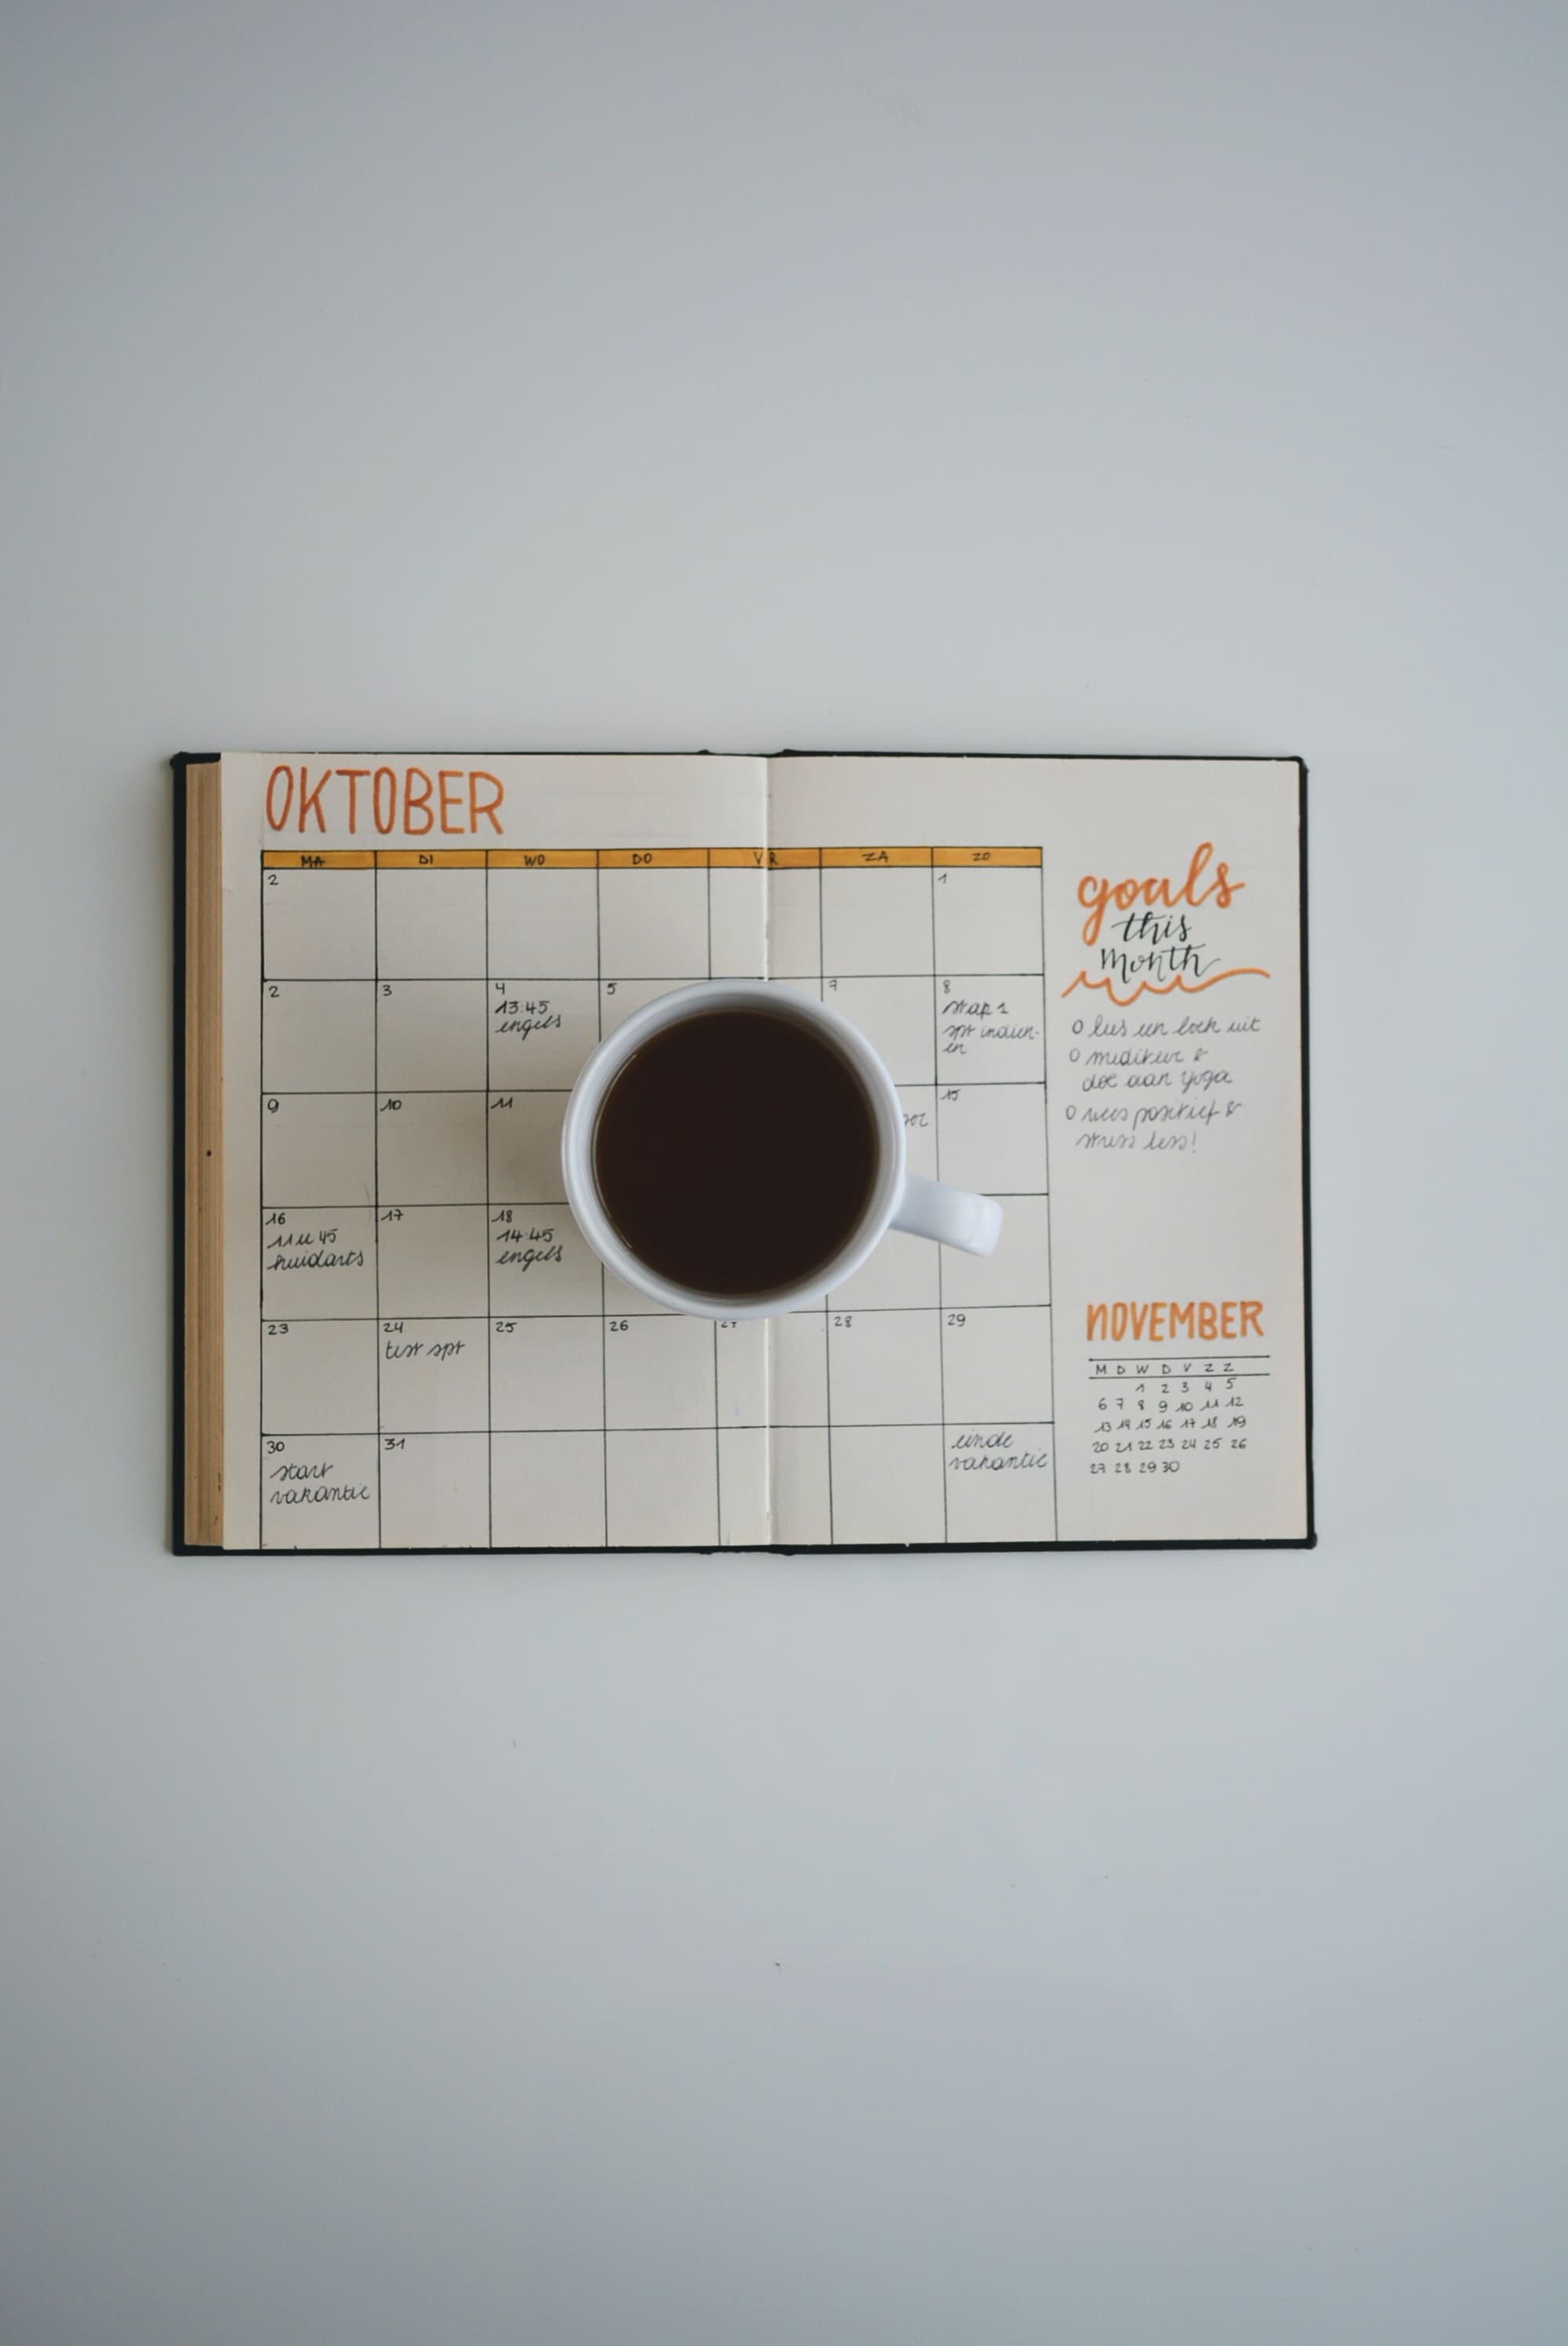 OKTOBER
MA DI WO DO VR ZA ZO
2 1
2 3 4 5 7 8
13:45
engels
stap 1
spt indien-
en
9 10 11 15
16 17 18
11u45
huidarts
14:45
engels
23 24 25 26 27 28 29
test spt
30 31
start
vakantie
einde
vakantie
goals
this
month
O lees een boek uit
O mediteer &
doe aan yoga
O wees positief &
stress less!
NOVEMBER
M D W D V Z Z
1 2 3 4 5
6 7 8 9 10 11 12
13 14 15 16 17 18 19
20 21 22 23 24 25 26
27 28 29 30